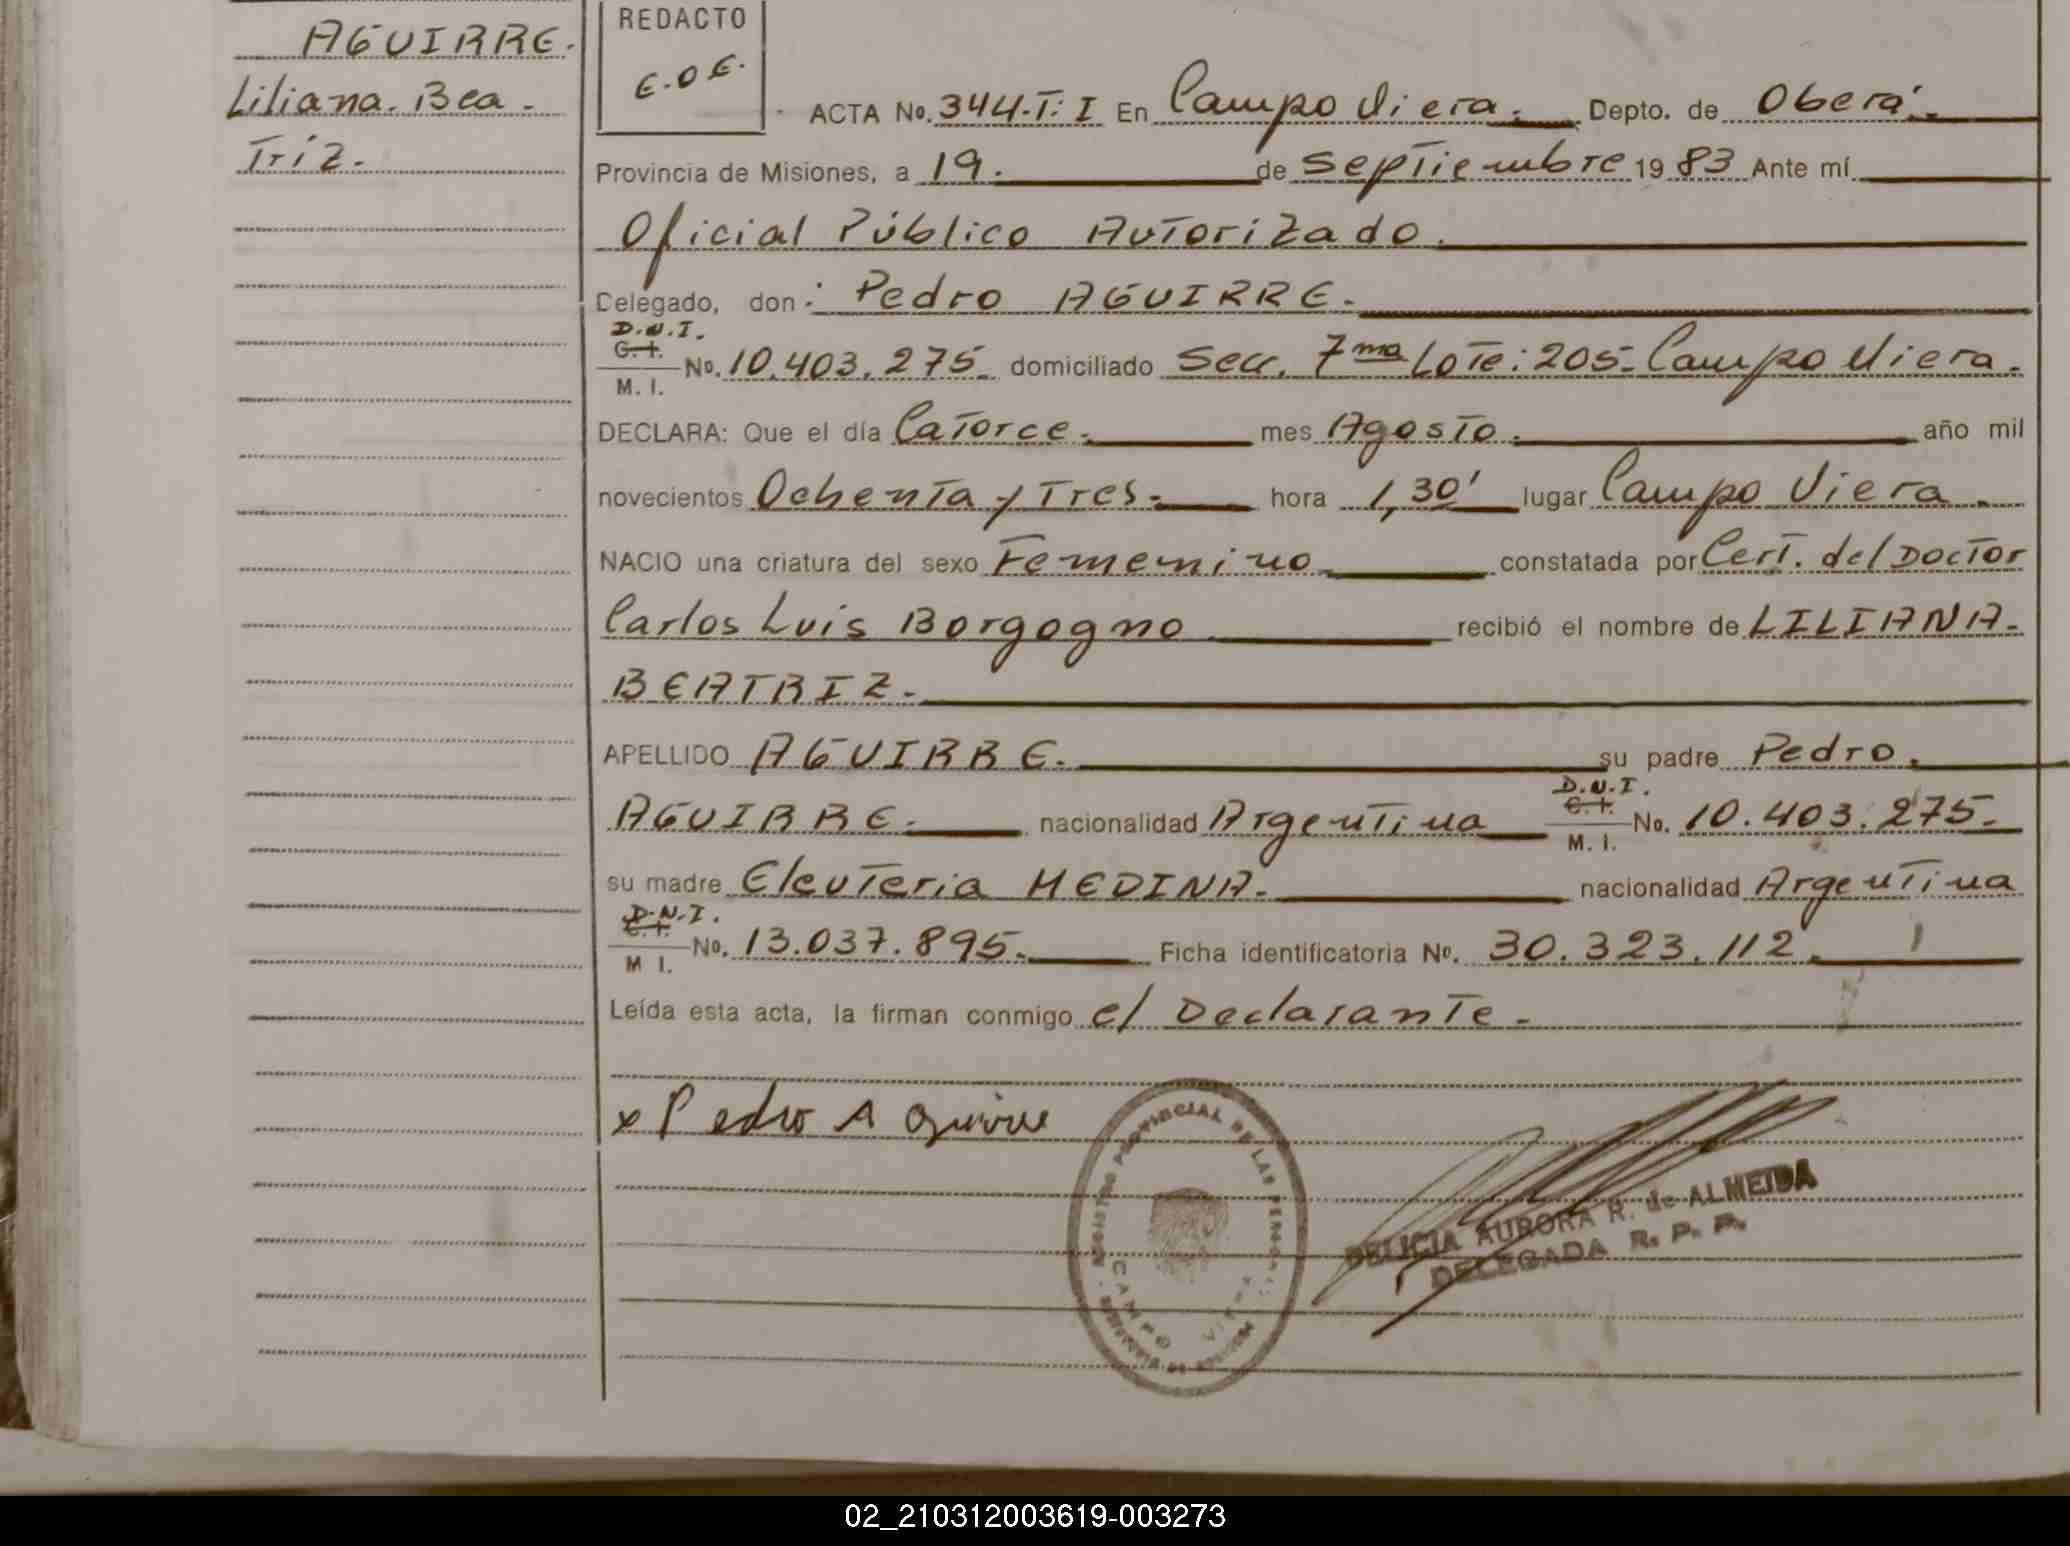 AGUIRRE.
Liliana. Bea-
Triz.
REDACTO
E.O.E.
ACTA No. 344-T: I En Campo Viera. Depto. de Oberá.
Provincia de Misiones, a 19. de Septiembre 1983 Ante mí
Oficial Público Autorizado.
Delegado, don: Pedro AGUIRRE.
D.N.I.
C.I.
No. 10.403.275. domiciliado Secc. 7ma Lote: 205- Campo Viera.
M. I.
DECLARA: Que el día Catorce. mes Agosto. año mil
novecientos Ochenta y Tres. hora 1,30' lugar Campo Viera.
NACIO una criatura del sexo Femenino constatada por Cert. del Doctor
Carlos Luis Borgogno recibió el nombre de LILIANA-
BEATRIZ.
APELLIDO AGUIRRE. su padre Pedro.
D.N.I.
C.I.
AGUIRRE. nacionalidad Argentina No. 10.403.275.
M. I.
su madre Eleuteria MEDINA. nacionalidad Argentina
D.N.I.
C.I.
No. 13.037.895. Ficha identificatoria No. 30.323.112.
M I.
Leída esta acta, la firman conmigo el Declarante.
x Pedro Aguirre
REGISTRO PROVINCIAL DE LAS PERSONAS
CAMPO VIERA
DELICIA AURORA R. de ALMEIDA
DELEGADA R. P. P.
02_210312003619-003273